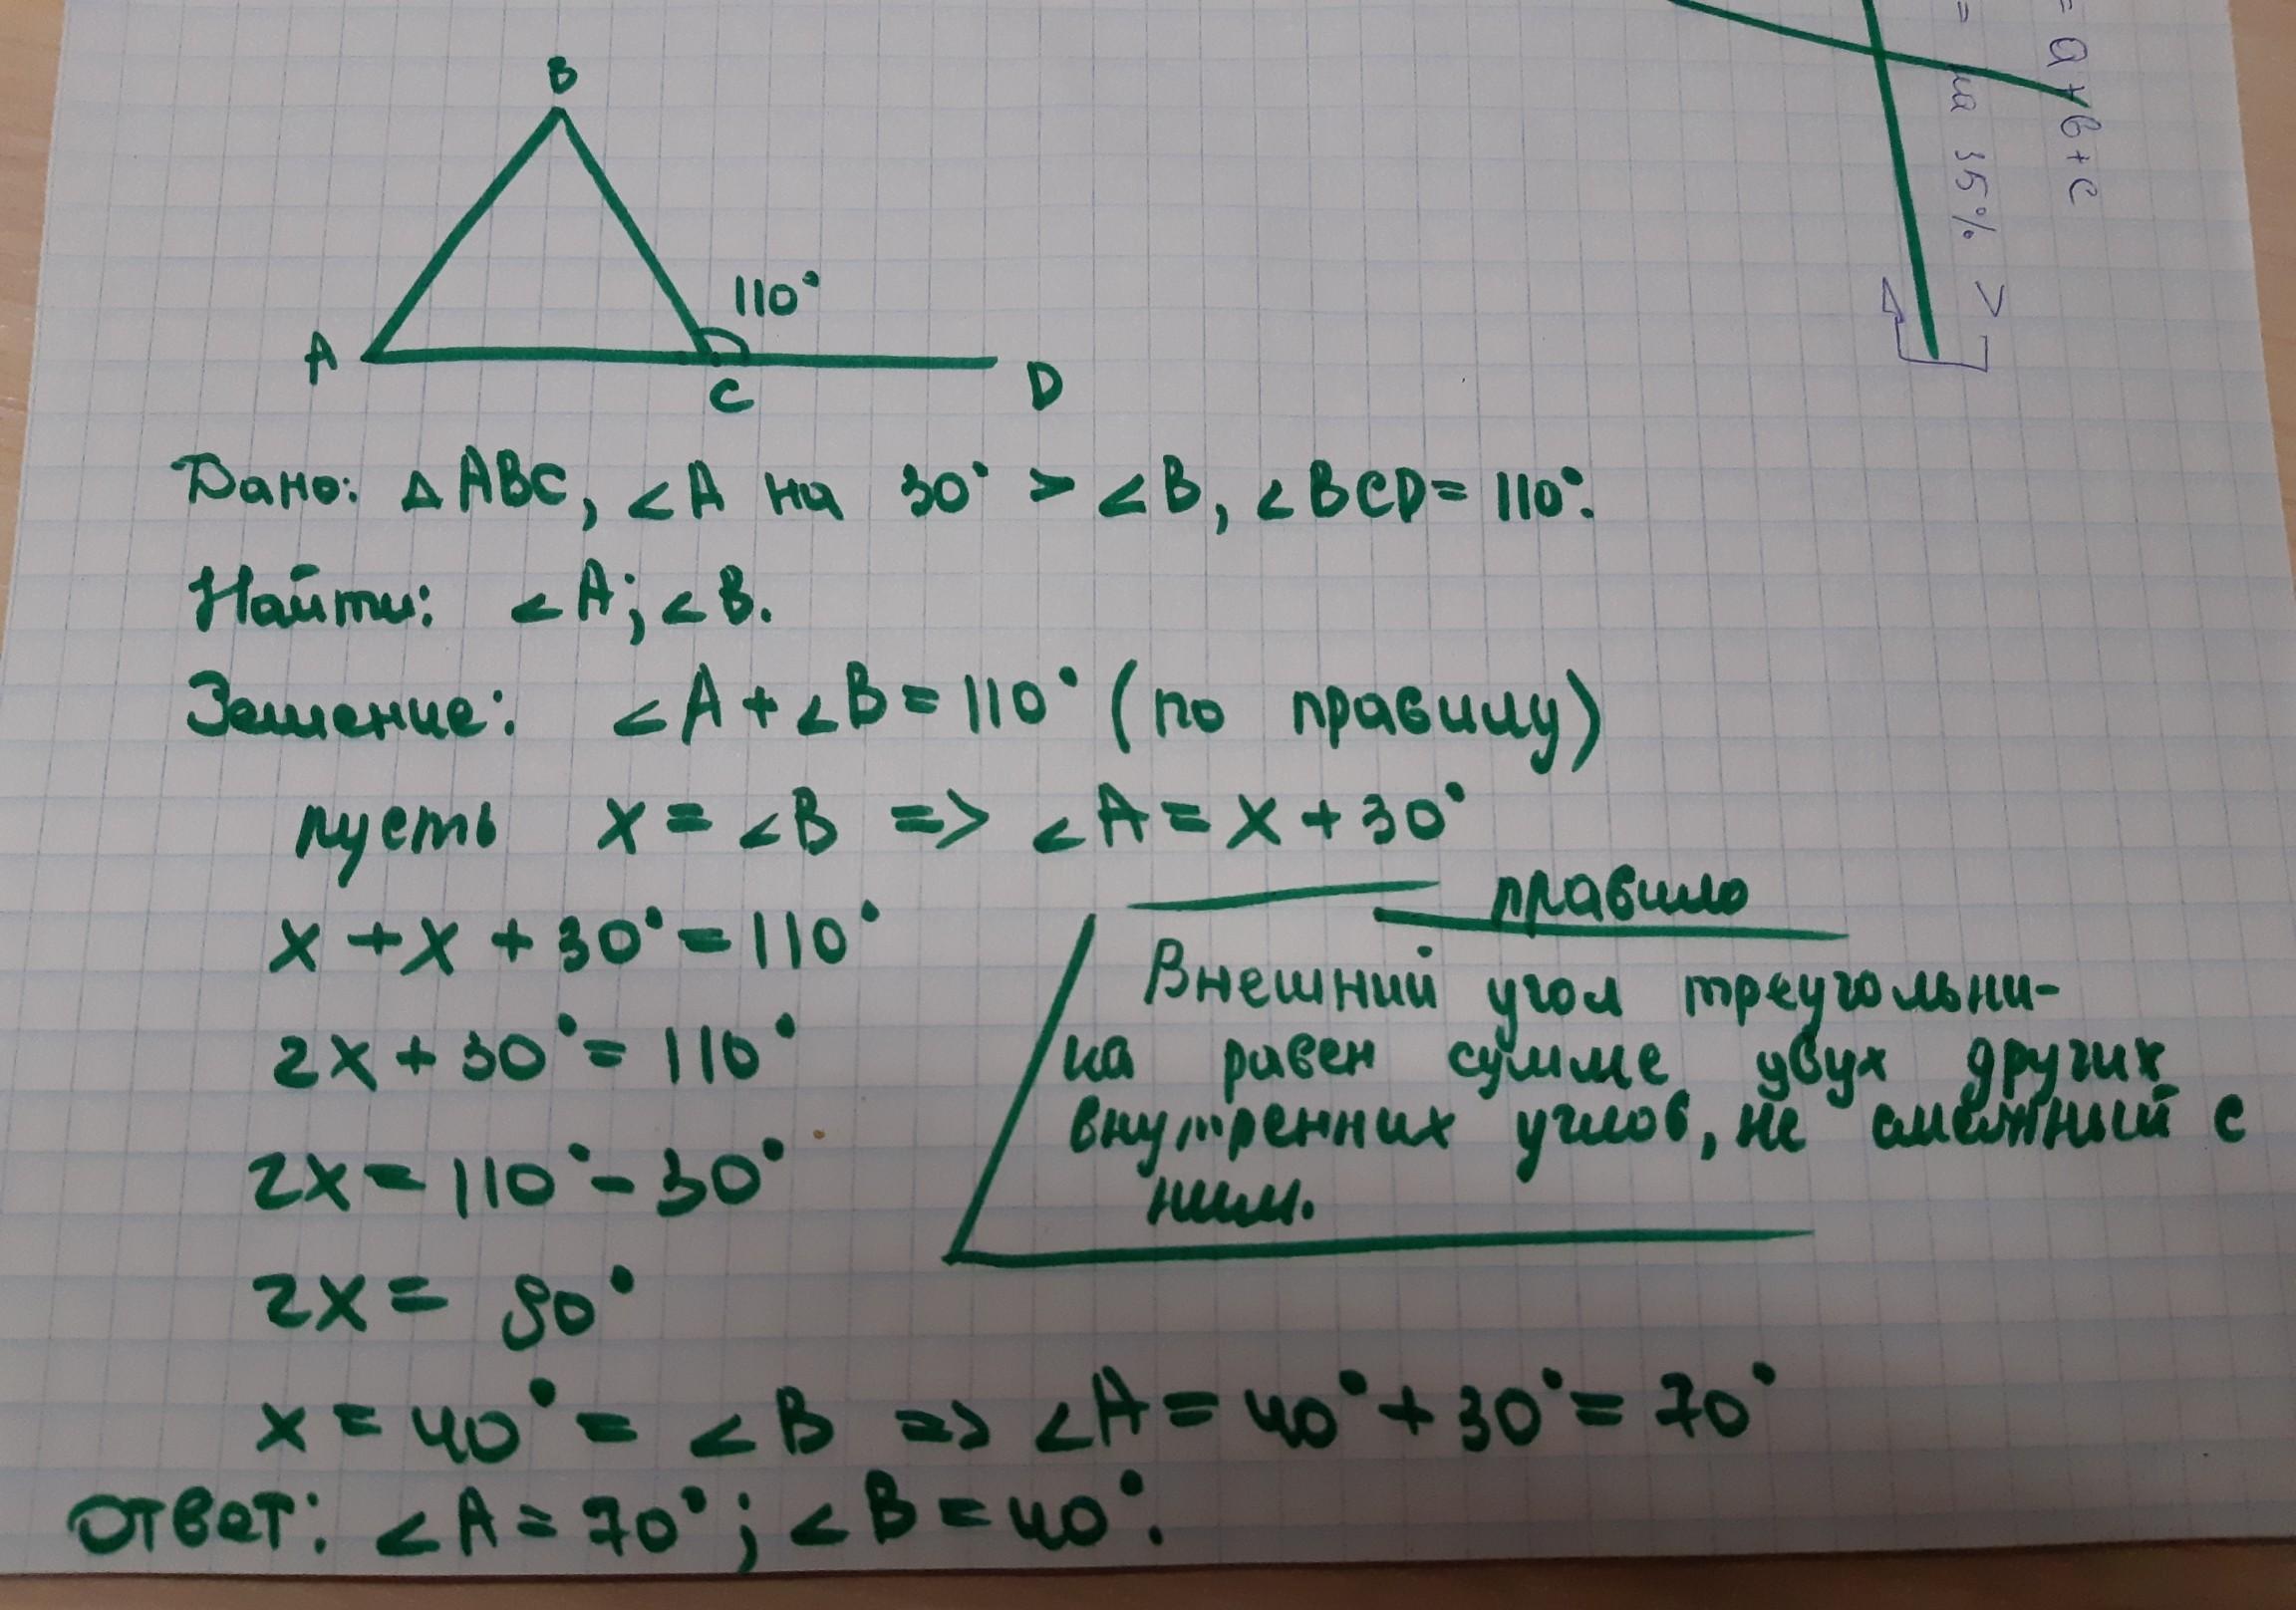 B
110°
A
C
D
Дано: △ABC, ∠A на 30° > ∠B, ∠BCD = 110°.
Найти: ∠A; ∠B.
Решение: ∠A + ∠B = 110° (по правилу)
пусть x = ∠B => ∠A = x + 30°
x + x + 30° = 110°
2x + 30° = 110°
2x = 110° - 30°
2x = 80°
x = 40° = ∠B => ∠A = 40° + 30° = 70°
Ответ: ∠A = 70°; ∠B = 40°.
правило
Внешний угол треугольни-
ка равен сумме двух других
внутренних углов, не смежный с
ним.
= a + b + c
= на 35% >